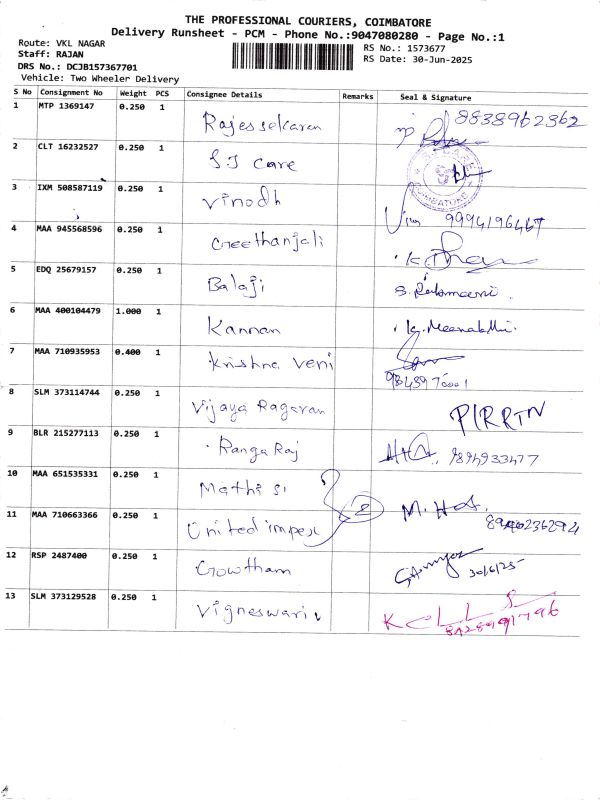 THE PROFESSIONAL COURIERS, COIMBATORE
Delivery Runsheet - PCM - Phone No.:9047080280 - Page No.:1
Route: VKL NAGAR
Staff: RAJAN
DRS No.: DCJB157367701
Vehicle: Two Wheeler Delivery
RS No.: 1573677
RS Date: 30-Jun-2025
S No Consignment No Weight PCS Consignee Details Remarks Seal & Signature
1 MTP 1369147 0.250 1 Rajessekaran 8838962362
2 CLT 16232527 0.250 1 SJ care COIMBATORE
3 IXM 508587119 0.250 1 Vinodh 9994196467
4 MAA 945568596 0.250 1 Geethanjali
5 EDQ 25679157 0.250 1 Balaji
6 MAA 400104479 1.000 1 Kannan
7 MAA 710935953 0.400 1 Krishna veni
8 SLM 373114744 0.250 1 Vijaya Ragavan
9 BLR 215277113 0.250 1 Ranga Raj 9894933477
10 MAA 651535331 0.250 1 Mathi
11 MAA 710663366 0.250 1 United 2
12 RSP 2487400 0.250 1 Gowtham 30/6/25
13 SLM 373129528 0.250 1 Vigneswari